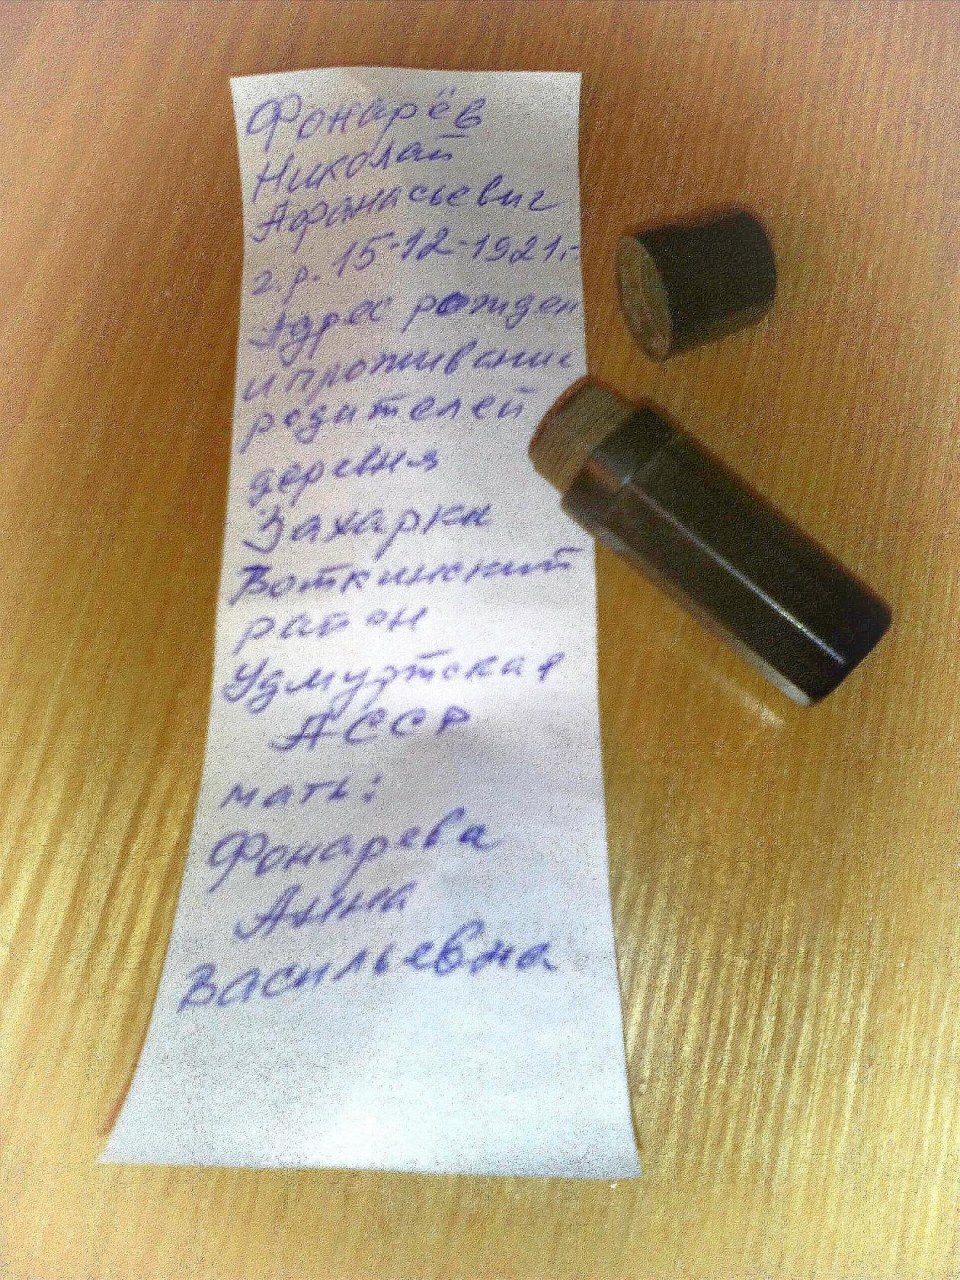 Фонарёв
Николай
Афанасьевич
г.р. 15-12-1921г.
Адрес рожден
и проживания
родителей
деревня
Захарки
Воткинский
район
Удмуртская
АССР
мать:
Фонарева
Анна
Васильевна